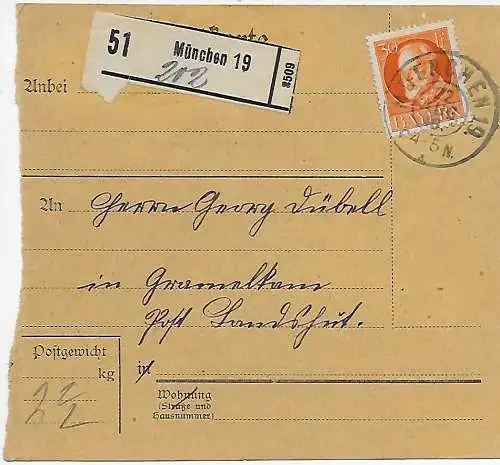 51 München 19
202
8509
30
MÜNCHEN 19.
4-5 N.
BAYERN
Anbei
An Herrn Georg Dübell
in Gramelkam
Post Landshut.
Postgewicht
kg
in
Wohnung
(Straße und
Hausnummer)